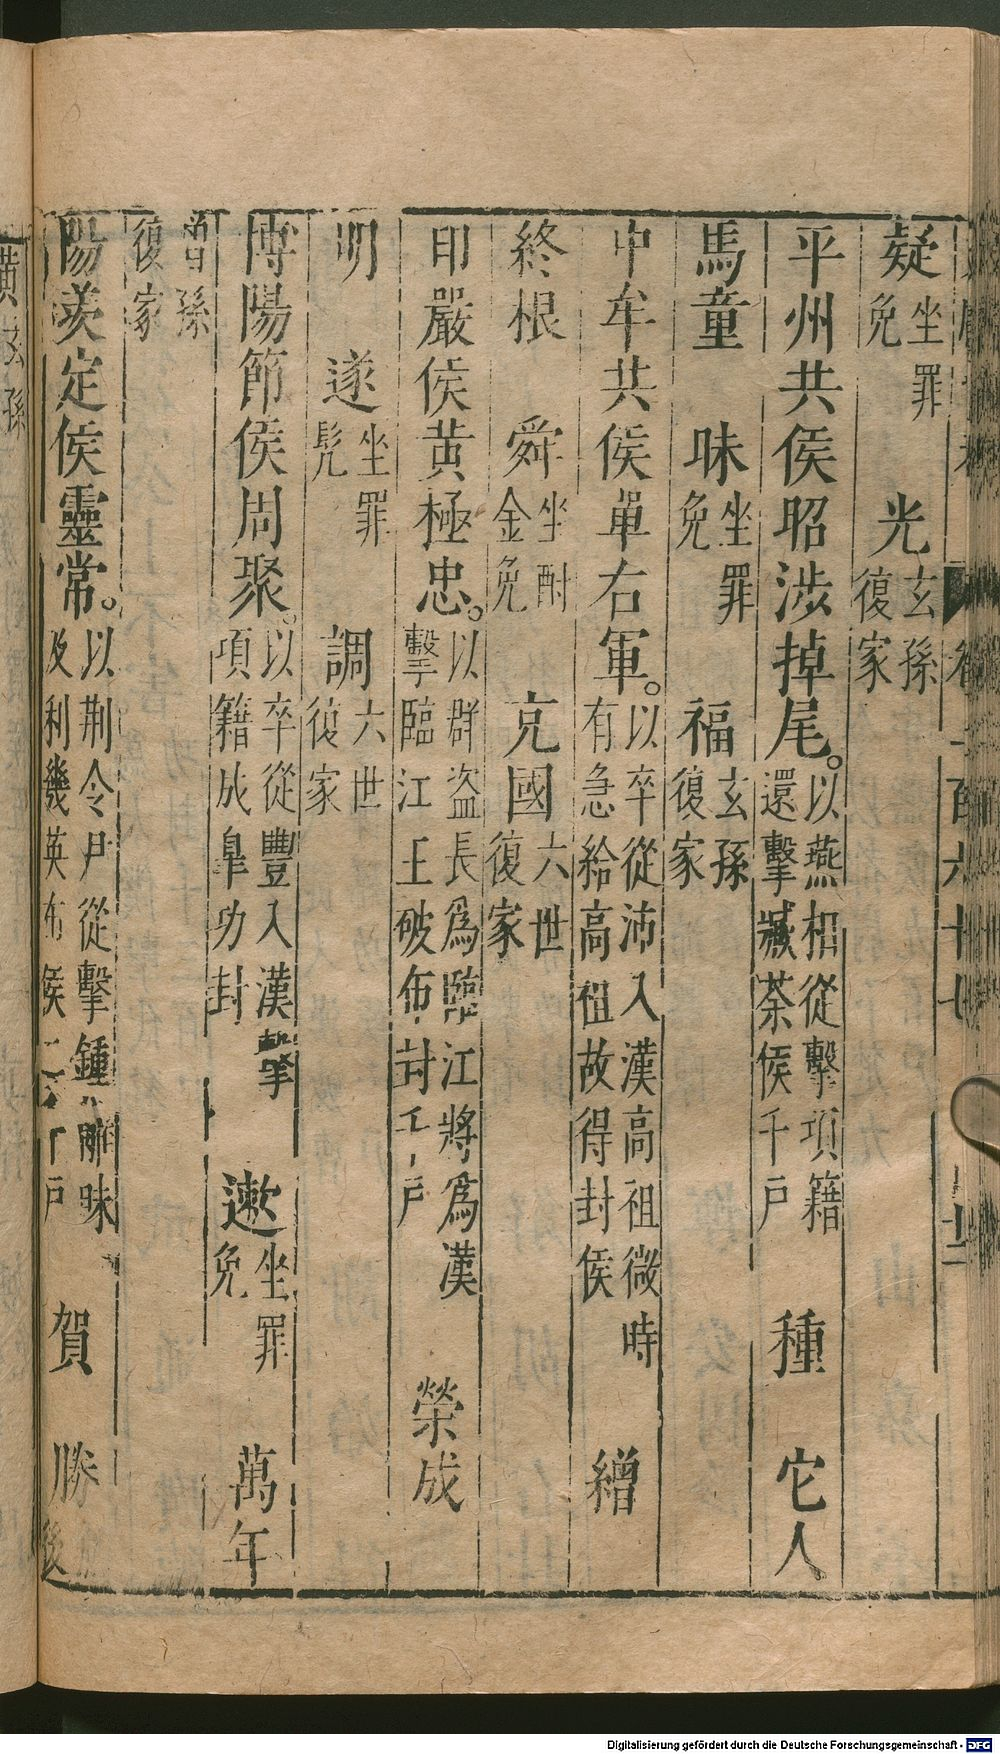 疑坐罪免　光玄孫復家
平州共侯昭涉掉尾。以燕相從擊項籍還擊臧荼侯千戸　種　它人
馬童　昧坐罪免　福玄孫復家
中牟共侯單右軍。以卒從沛入漢高祖微時有急給高祖故得封侯　繒
終根　舜坐酎金免　克國六世復家
印嚴侯黄極忠。以群盗長爲臨江將爲漢擊臨江王破布封千戸　榮成
明　遂坐罪髠　調六世復家
博陽節侯周聚。以卒從豐入漢擊項籍成皐功封　遬坐罪免　萬年
曾孫復家
陽羨定侯靈常。以荆令尹從擊鍾離昧及利幾英布侯二千戸　賀　勝
卷一百六十七
黄玄孫
Digitalisierung gefördert durch die Deutsche Forschungsgemeinschaft - DFG